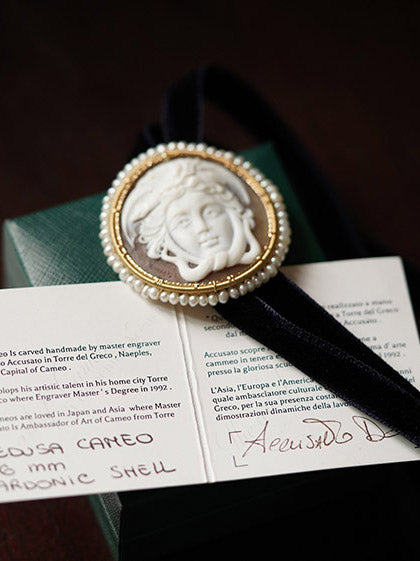 eo Is carved handmade by master engraver
Accusato in Torre del Greco , Neaples,
Capital of Cameo .
lops his artistic talent in his home city Torre
co where Engraver Master's Degree in 1992 .
meos are loved in Japan and Asia where Master
to Is Ambassador of Art of Cameo from Torre
EDUSA CAMEO
6 MM
ARDONIC SHELL
realizzato a mano
" Qu
second
dal
Accusato scopre
cameo in tenera e
presso la gloriosa scuo
d' arte
1992 .
L'Asia, l'Europa e l'America
quale ambasciatore cultur
Greco, per la sua presenza costa
dimostrazioni dinamiche della lavo
Accusato D